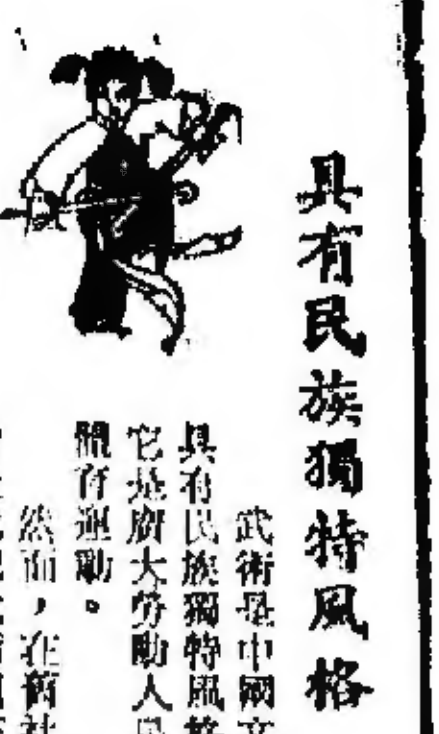 具有民族獨特風格
武術是中國文
具有民族獨特風格
它是廣大勞動人民
體育運動。
然而，在舊社